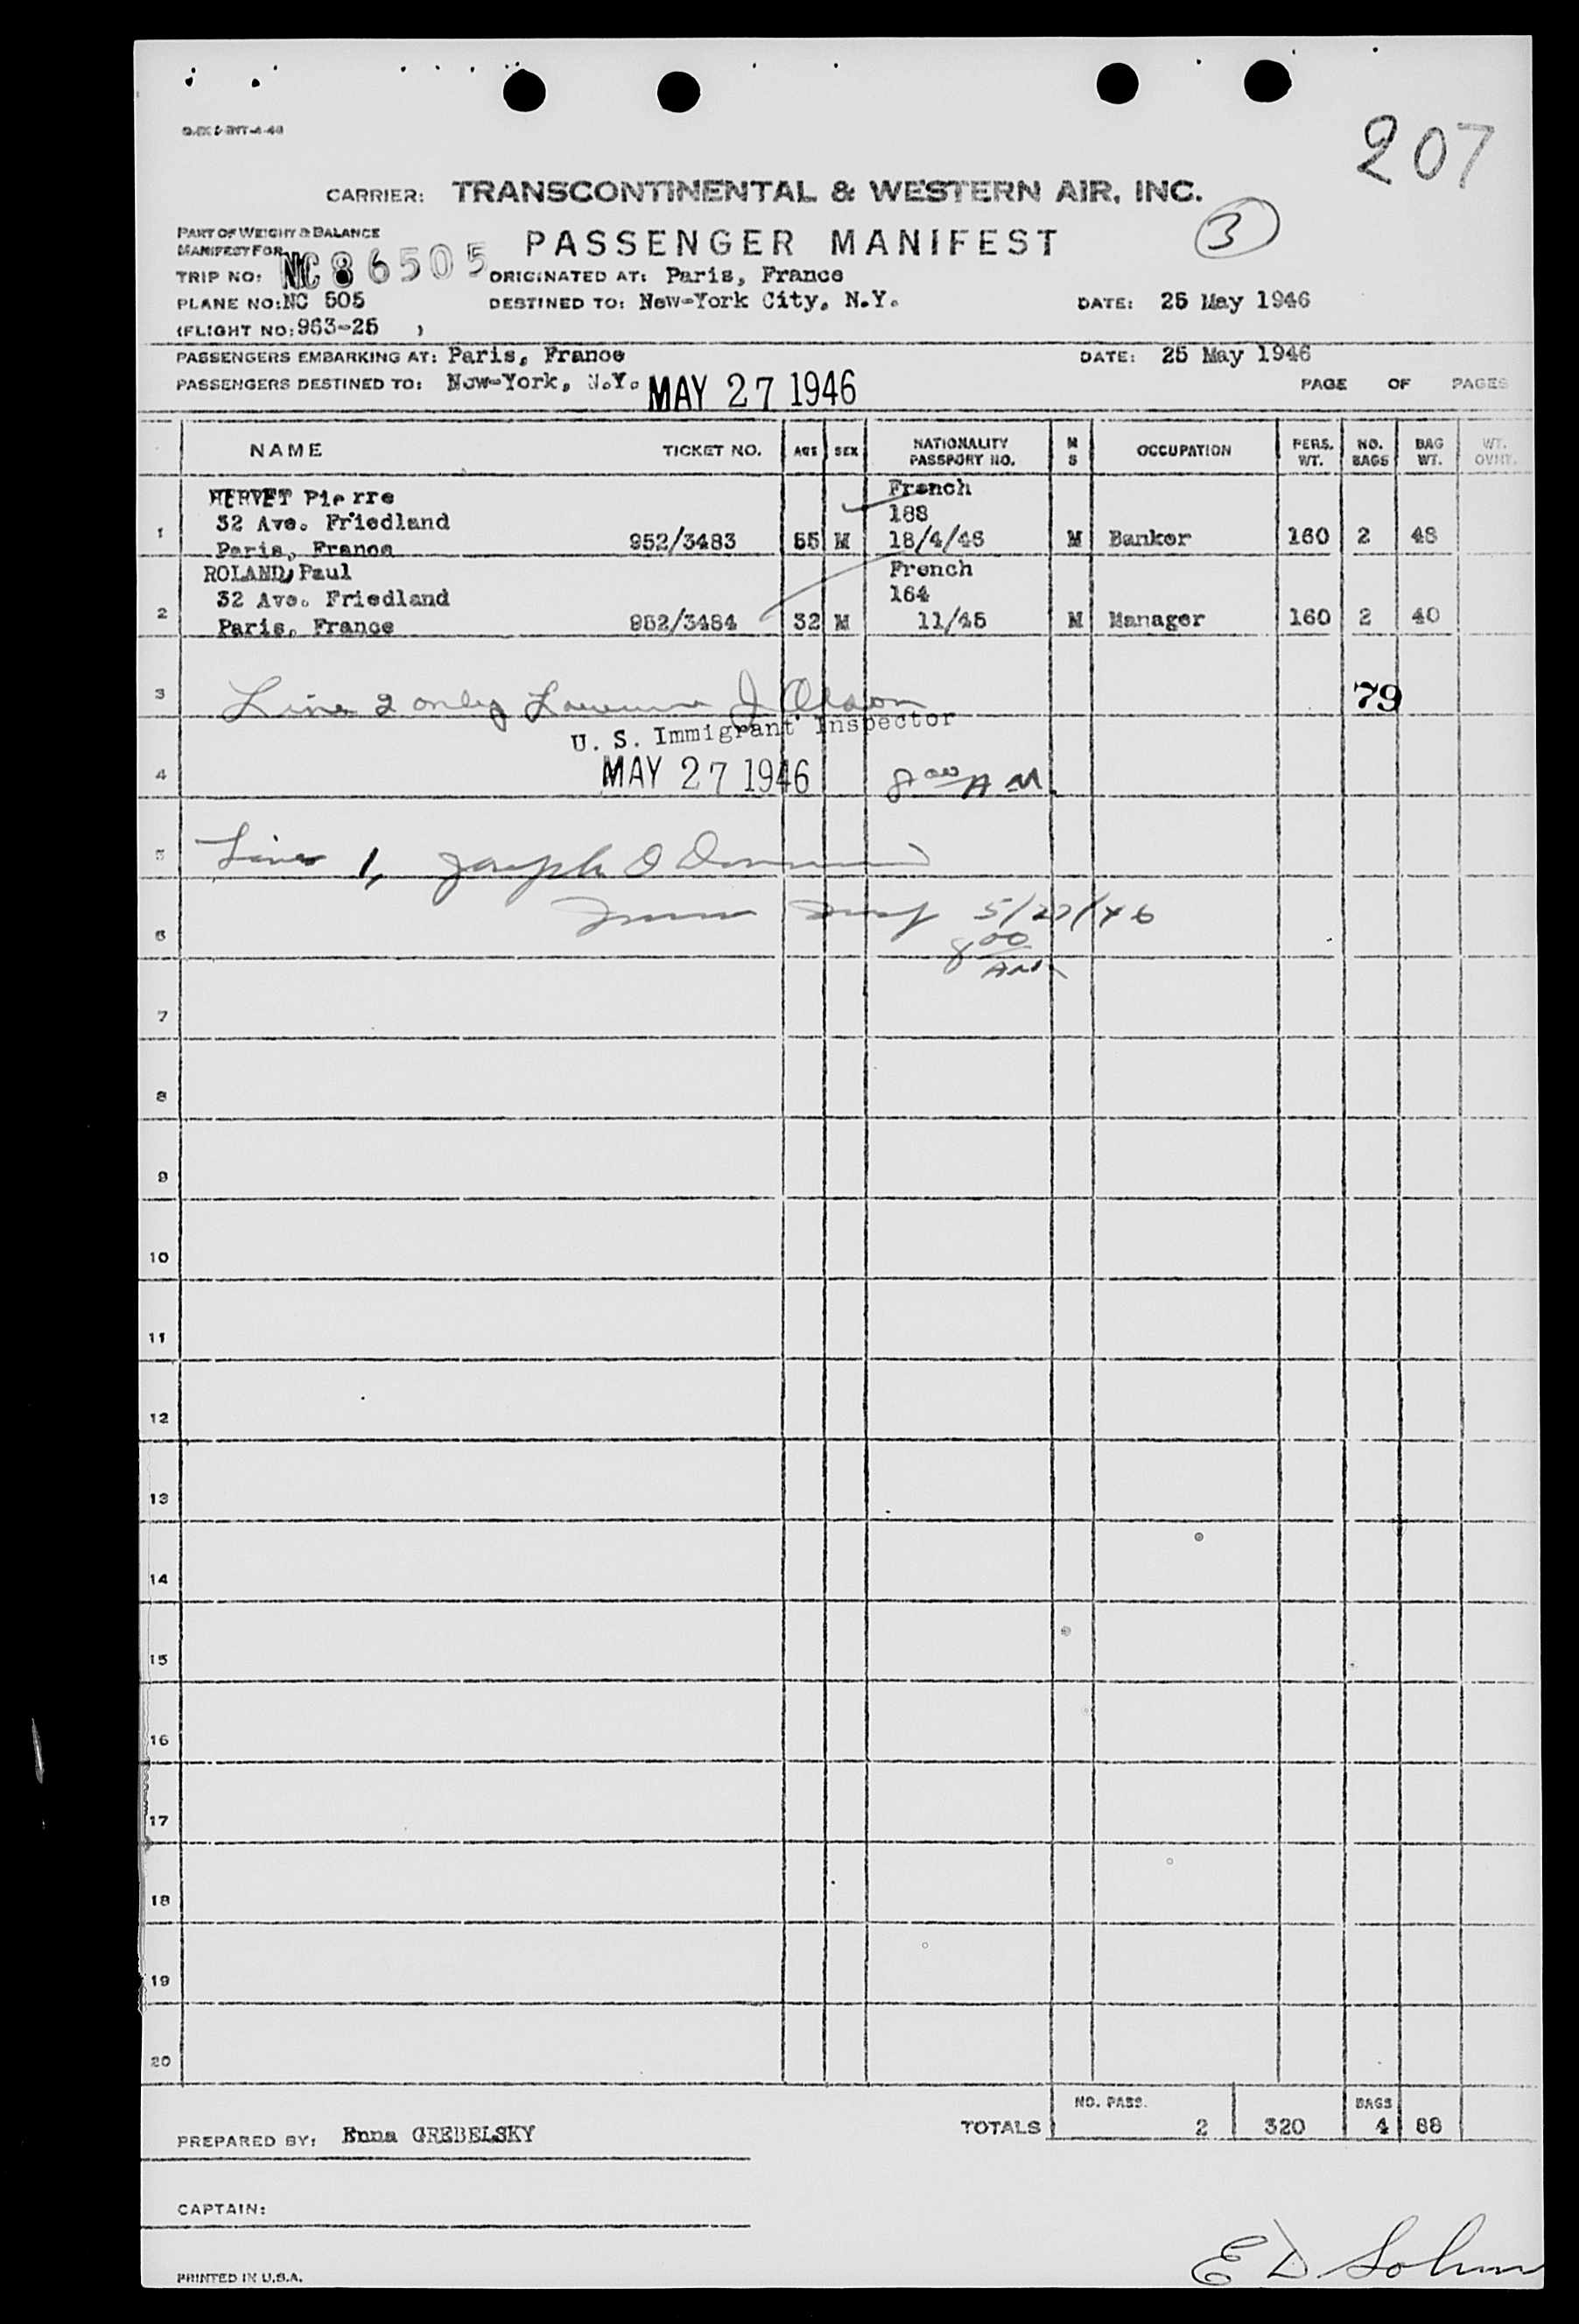 207
CARRIER: TRANSCONTINENTAL & WESTERN AIR, INC.
PART OF WEIGHT & BALANCE
MANIFEST FOR
PASSENGER MANIFEST
3
TRIP NO: NC 86505 ORIGINATED AT: Paris, France
PLANE NO: NC 505 DESTINED TO: New-York City, N.Y. DATE: 25 May 1946
(FLIGHT NO: 963-25 )
PASSENGERS EMBARKING AT: Paris, France DATE: 25 May 1946
PASSENGERS DESTINED TO: New-York, N.Y. MAY 27 1946 PAGE OF PAGES
NAME TICKET NO. AGE SEX NATIONALITY PASSPORT NO. M S OCCUPATION PERS. WT. NO. BAGS BAG WT. WT. OVHT.
HERVET Pierre French
32 Ave. Friedland 188
1 Paris, France 952/3483 55 M 18/4/46 M Banker 160 2 48
ROLAND, Paul French
32 Ave. Friedland 164
2 Paris, France 952/3484 32 M 11/45 M Manager 160 2 40
3 Line 2 only Lawrence J Olson 79
U. S. Immigrant Inspector
4 MAY 27 1946 8 00 AM
5 Line 1, Joseph
6 5/27/46
8 00 AM
7
8
9
10
11
12
13
14
15
16
17
18
19
20
NO. PASS. BAGS
TOTALS 2 320 4 88
PREPARED BY: Enna GREBELSKY
CAPTAIN:
PRINTED IN U.S.A.
E D